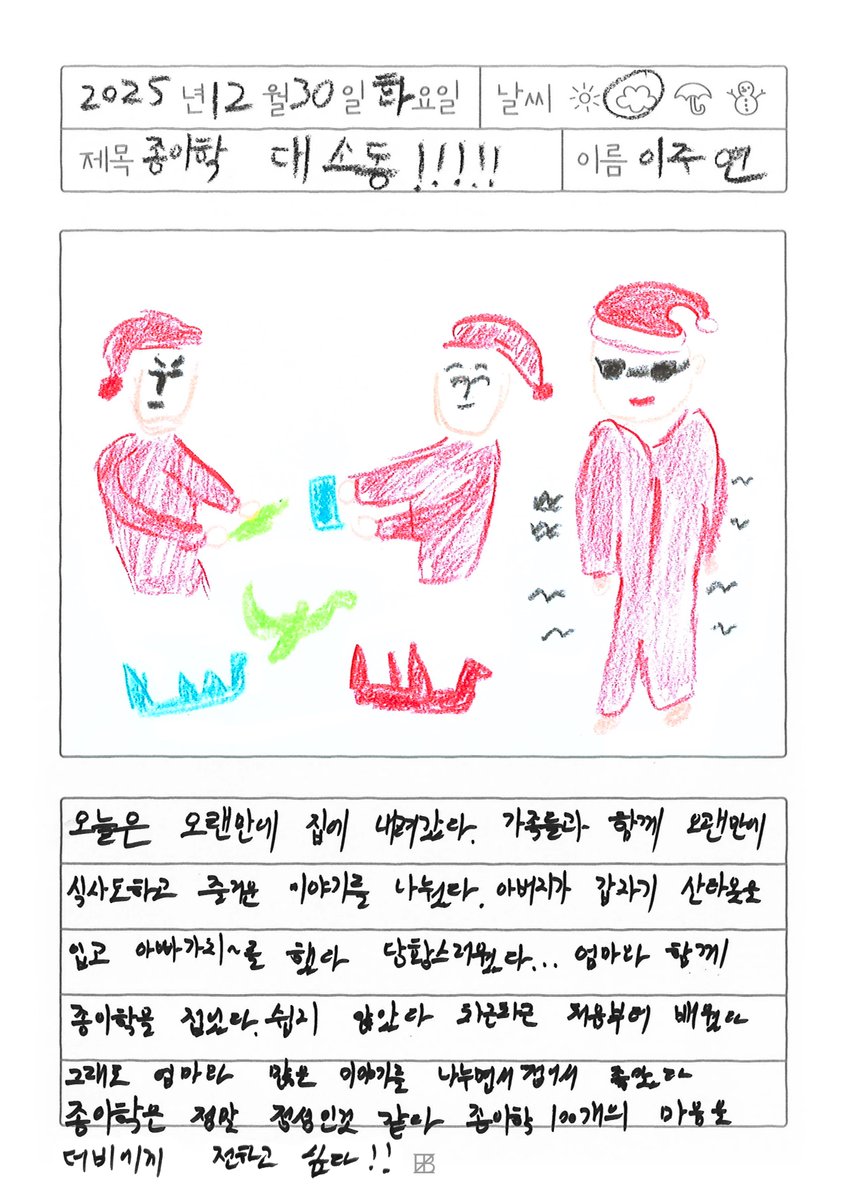 2025 년 12 월 30 일 화요일 날씨
제목 종이학 대 소동 !!!!! 이름 이주연
오늘은 오랜만에 집에 내려갔다. 가족들과 함께 오랜만에
식사도하고 즐거운 이야기를 나눴다. 아버지가 갑자기 산타옷을
입고 아빠가치~를 했다 당황스러웠다... 엄마랑 함께
종이학을 접었다. 쉽지 않았다 차근차근 처음부터 배웠다
그래도 엄마랑 많은 이야기를 나누면서 접어서 좋았다
종이학은 정말 정성인것 같아 종이학 100개의 마음을
더비에게 전하고 싶다!!